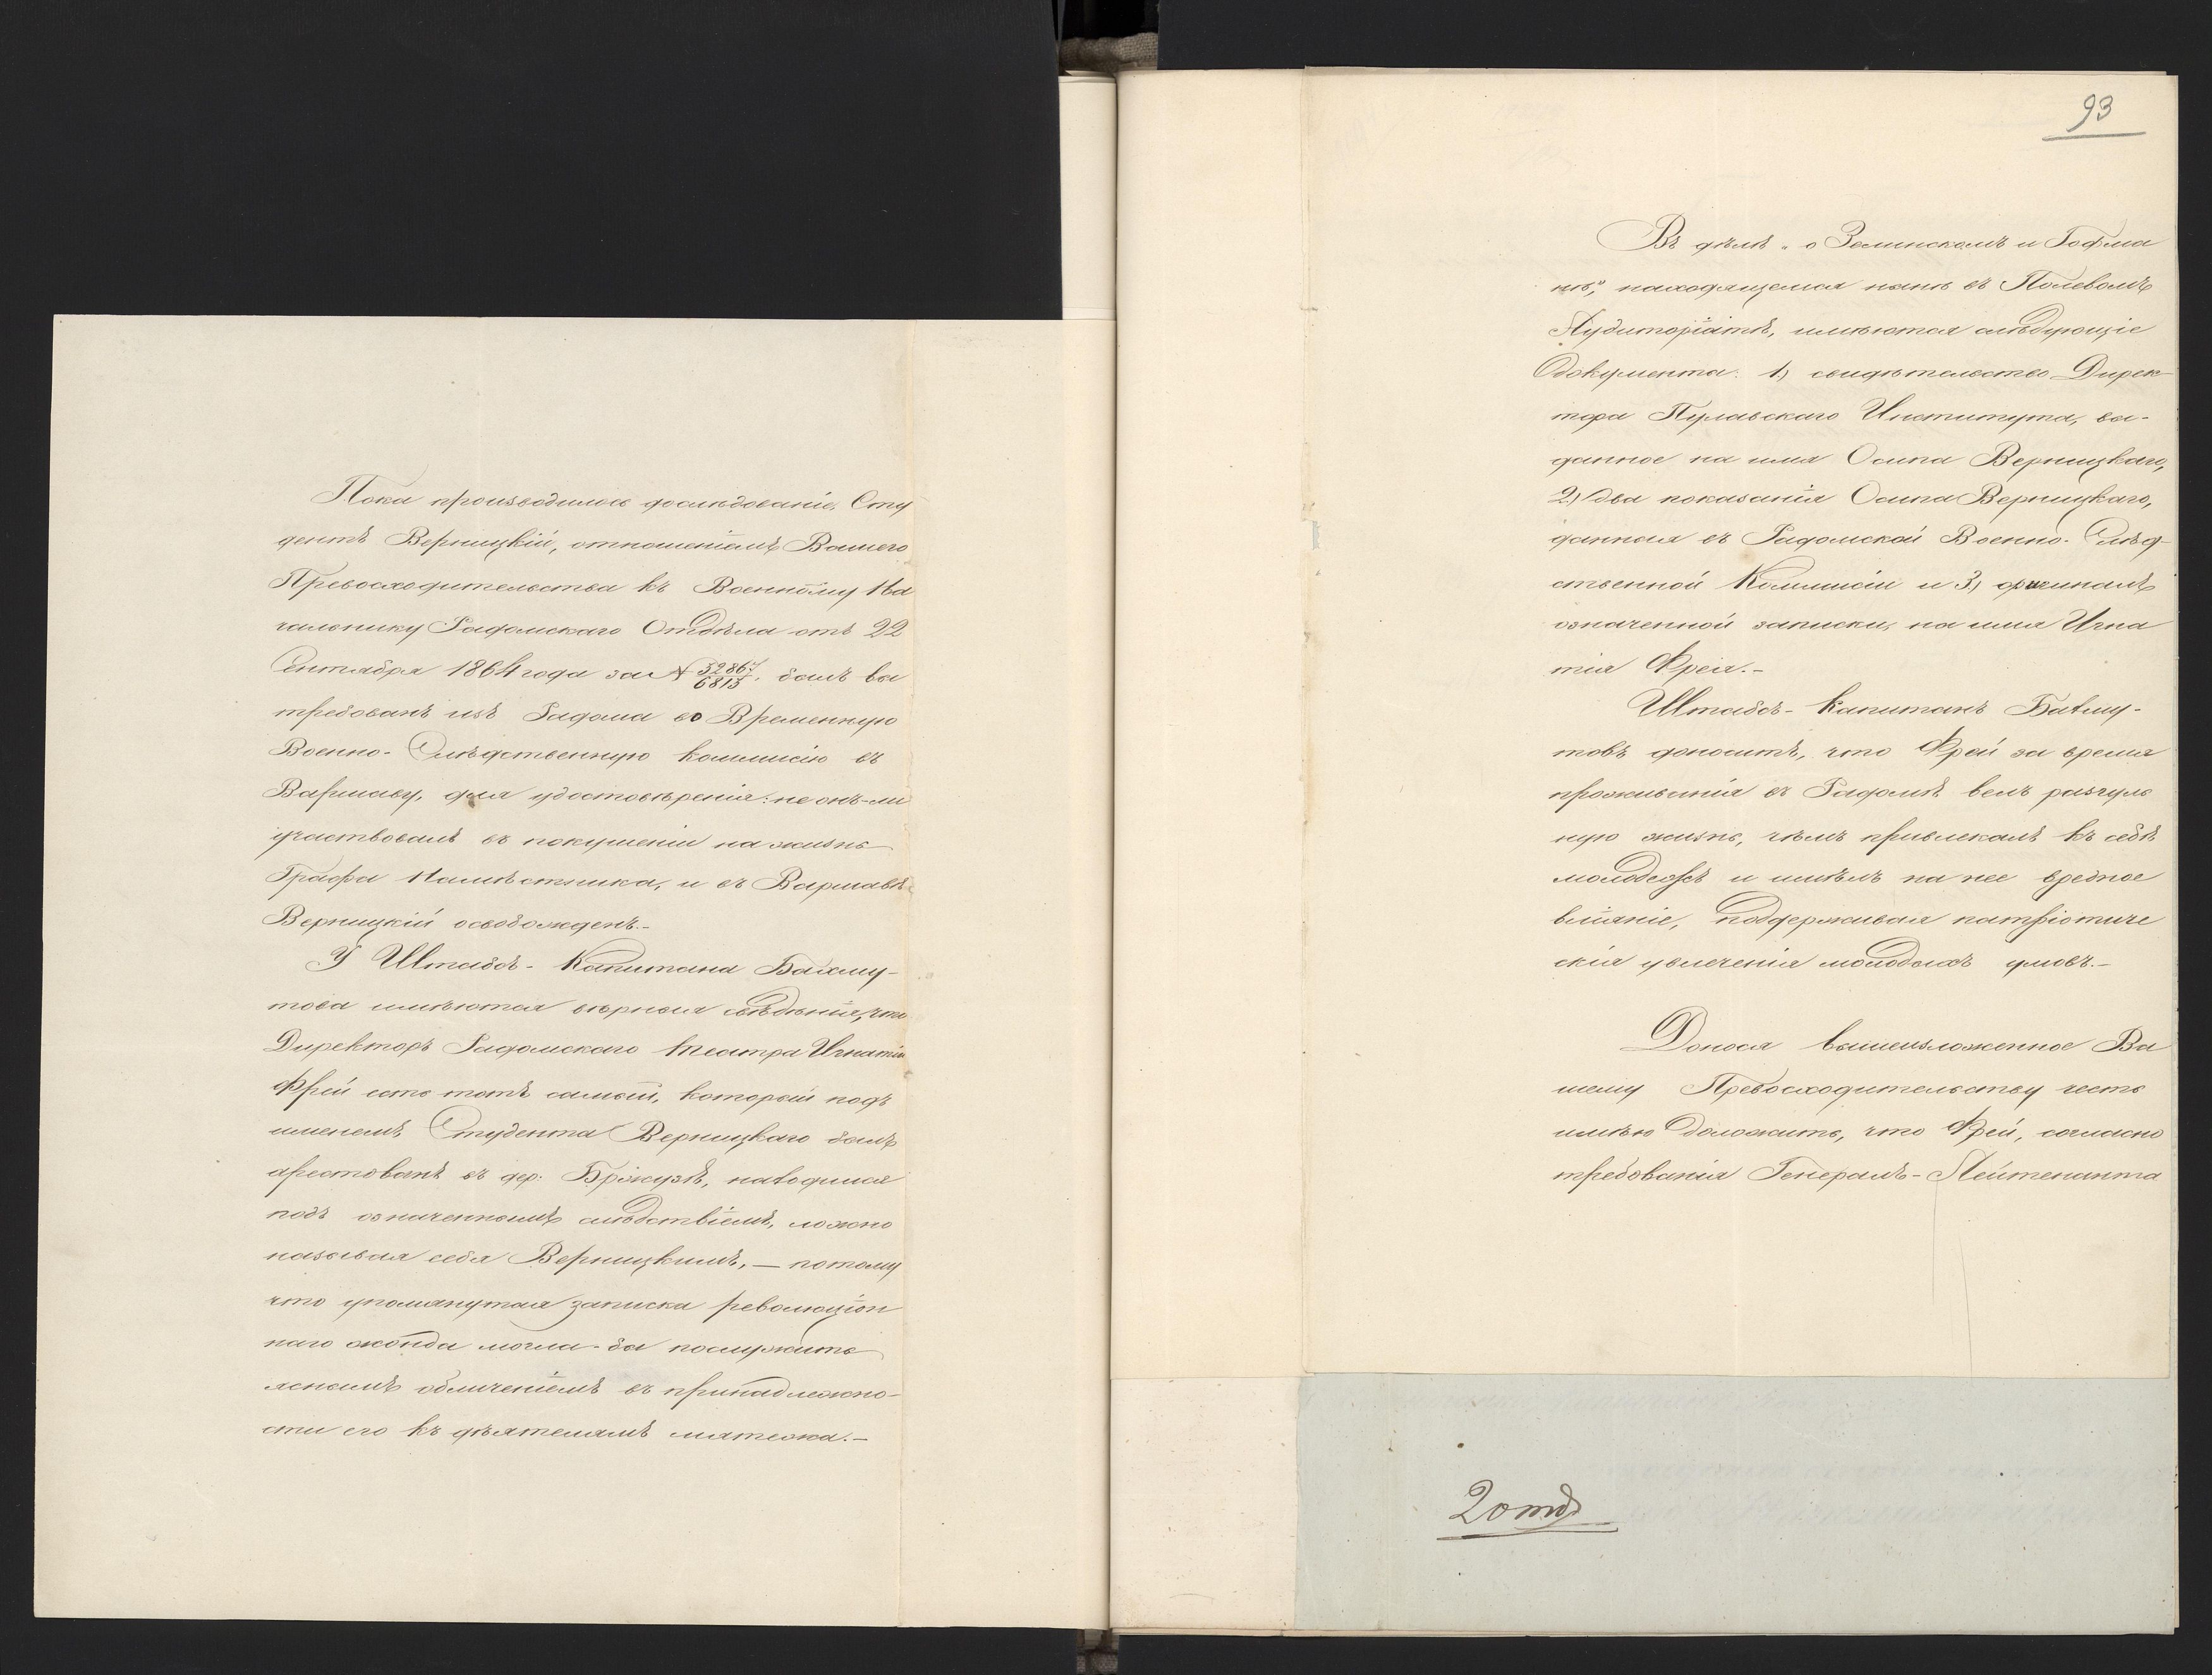 Пока производилось дослѣдованіе, Сту
дентъ Верницкій, отношеніемъ Вашего
Превосходительства къ Военному На
чальнику Радомскаго Отдѣла отъ 22
Сентября 1864 года за № 32867/6813, былъ вы
требованъ изъ Радома во Временную
Военно-Слѣдственную коммисію въ
Варшаву, для удостовѣренія: не онъ-ли
участвовалъ въ покушеніи на жизнь
Графа Намѣстника, и въ Варшавѣ
Верницкій освобожденъ.-
У Штабсъ-Капитана Бахму-
това имѣются вѣрныя свѣдѣнія, что
Директоръ Радомскаго театра Игнатій
Фрей есть тотъ самый, который подъ
именемъ Студента Верницкаго былъ
арестованъ въ дер. Бржузѣ, находился
подъ означеннымъ слѣдствіемъ, ложно
называя себя Верницкимъ, — потому
что упомянутая записка революціон
наго жонда могла-бы послужить
яснымъ обличеніемъ въ принадлежно-
сти его къ дѣятелямъ мятежа.—
93
Въ дѣлѣ „о Зелинскомъ и Гофма
нѣ“, находящемся нынѣ въ Полевомъ
Аудиторіатѣ, имѣются слѣдующіе
документы: 1) свидѣтельство Дирек-
тора Пулавскаго Института, вы-
данное на имя Осипа Верницкаго,
2) два показанія Осипа Верницкаго,
данныя въ Радомской Военно-Слѣд-
ственной Коммисіи и 3) оригиналъ
означенной записки, на имя Игна
тія Фрея.-
Штабсъ-Капитанъ Бахму-
товъ доноситъ, что Фрей за время
проживанія въ Радомѣ велъ разгуль
ную жизнь, чѣмъ привлекалъ къ себѣ
молодежь и имѣлъ на нее вредное
вліяніе, поддерживая патріотиче
скія увлеченія молодыхъ умовъ.—
Донося вышеизложенное Ва
шему Превосходительству честь
имѣю доложить, что Фрей, согласно
требованія Генералъ-Лейтенанта
2 отд